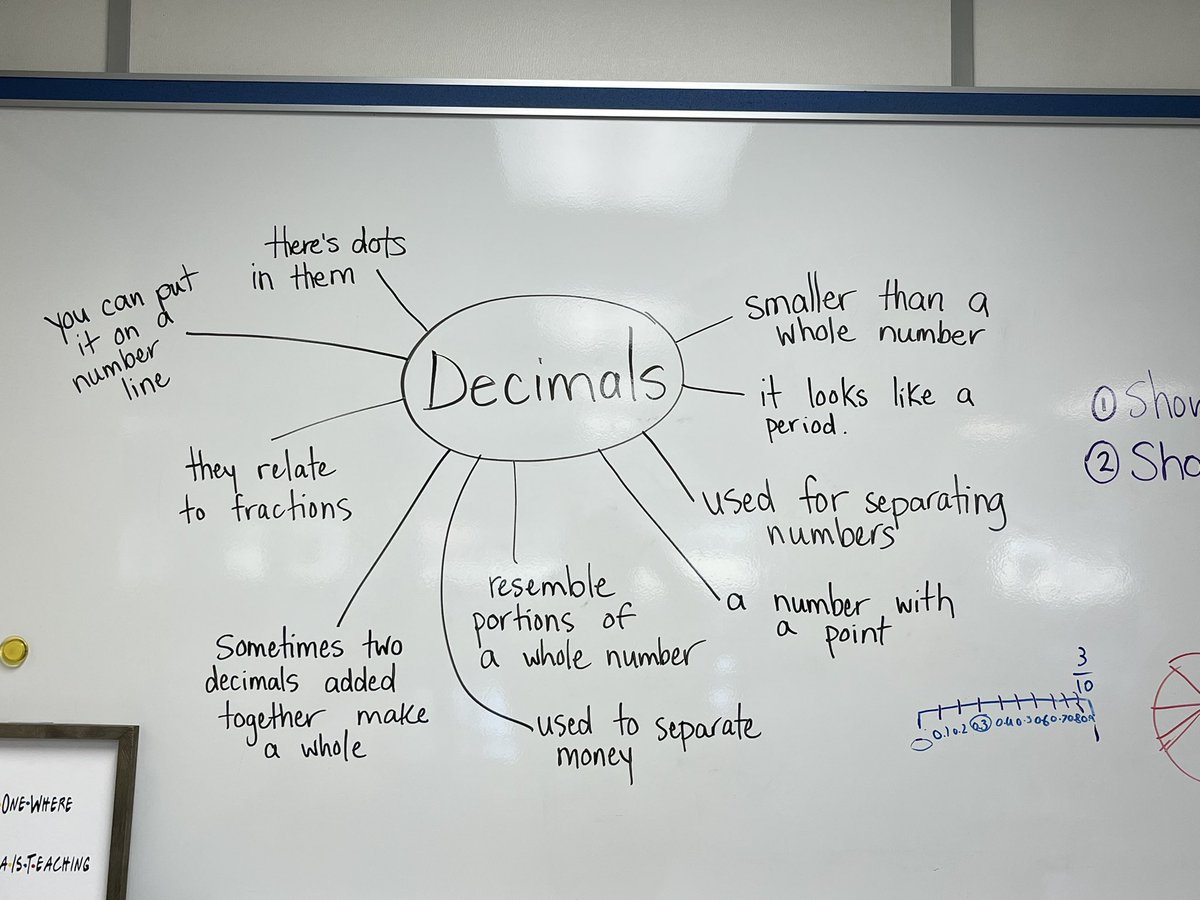 there's dots
in them
you can put
it on a
number
line
they relate
to fractions
Sometimes two
decimals added
together make
a whole
Decimals
resemble
portions of
a whole number
used to separate
money
smaller than a
whole number
it looks like a
period.
used for separating
numbers
a number with
a point
3
10
0 0.1 0.2 0.3 0.4 0.5 0.6 0.7 0.8 0.9 1
① Show
② Sho
ONE·WHERE
A·IS·TEACHING